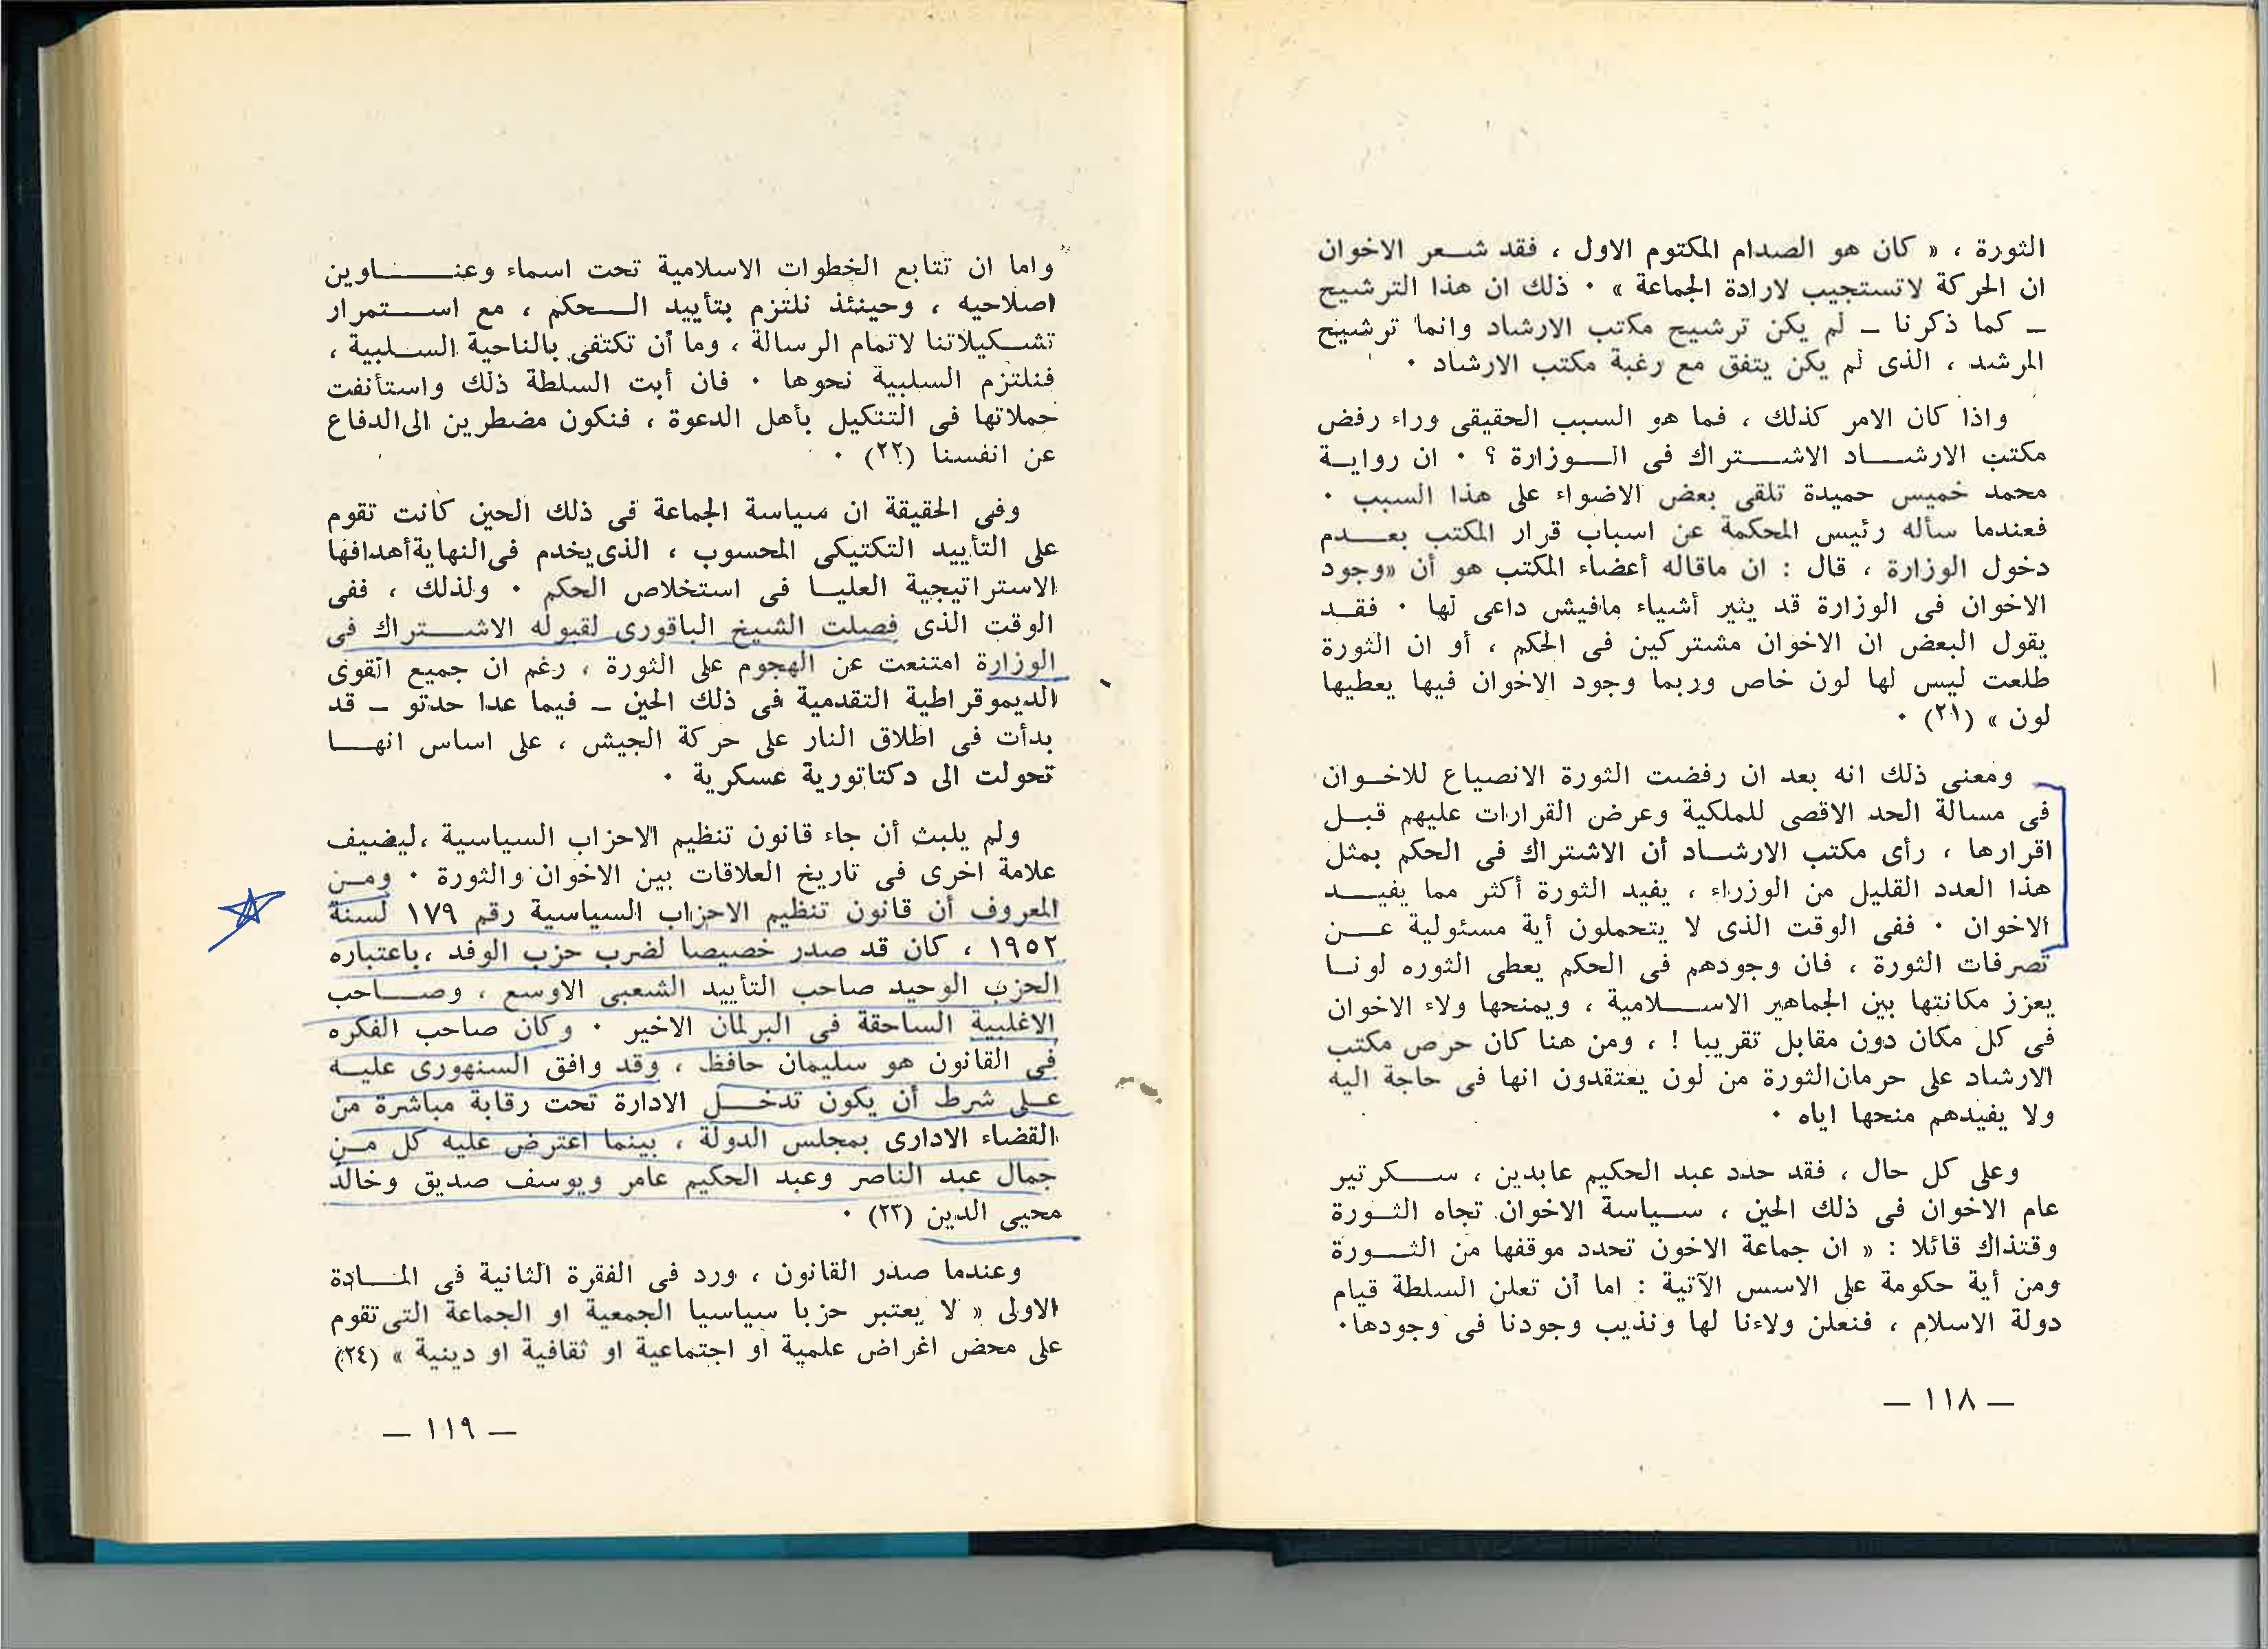 الثورة ، « كان هو الصدام المكتوم الاول ، فقد شعر الاخوان
ان الحركة لاتستجيب لارادة الجماعة » ٠ ذلك ان هذا الترشيح
ـ كما ذكرنا ـ لم يكن ترشيح مكتب الارشاد وانما ترشيح
المرشد ، الذى لم يكن يتفق مع رغبة مكتب الارشاد ٠
واذا كان الامر كذلك ، فما هو السبب الحقيقى وراء رفض
مكتب الارشاد الاشتراك فى الوزارة ؟ ٠ ان رواية
محمد خميس حميدة تلقى بعض الاضواء على هذا السبب ٠
فعندما سأله رئيس المحكمة عن اسباب قرار المكتب بعدم
دخول الوزارة ، قال : ان ماقاله أعضاء المكتب هو أن «وجود
الاخوان فى الوزارة قد يثير أشياء مافيش داعى لها ٠ فقد
يقول البعض ان الاخوان مشتركين فى الحكم ، أو ان الثورة
طلعت ليس لها لون خاص وربما وجود الاخوان فيها يعطيها
لون » (٢١) ٠
ومعنى ذلك انه بعد ان رفضت الثورة الانصياع للاخوان
فى مسالة الحد الاقصى للملكية وعرض القرارات عليهم قبل
اقرارها ، رأى مكتب الارشاد أن الاشتراك فى الحكم بمثل
هذا العدد القليل من الوزراء ، يفيد الثورة أكثر مما يفيد
الاخوان ٠ ففى الوقت الذى لا يتحملون أية مسئولية عن
تصرفات الثورة ، فان وجودهم فى الحكم يعطى الثوره لونا
يعزز مكانتها بين الجماهير الاسلامية ، ويمنحها ولاء الاخوان
فى كل مكان دون مقابل تقريبا ! ، ومن هنا كان حرص مكتب
الارشاد على حرمان الثورة من لون يعتقدون انها فى حاجة اليه
ولا يفيدهم منحها اياه ٠
وعلى كل حال ، فقد حدد عبد الحكيم عابدين ، سكرتير
عام الاخوان فى ذلك الحين ، سياسة الاخوان تجاه الثورة
وقتذاك قائلا : « ان جماعة الاخون تحدد موقفها من الثورة
ومن أية حكومة على الاسس الآتية : اما أن تعلن السلطة قيام
دولة الاسلام ، فنعلن ولاءنا لها ونذيب وجودنا فى وجودها٠
ـ ١١٨ ـ
واما ان تتابع الخطوات الاسلامية تحت اسماء وعناوين
اصلاحيه ، وحينئذ نلتزم بتأييد الحكم ، مع استمرار
تشكيلاتنا لاتمام الرسالة ، وما أن تكتفى بالناحية السلبية ،
فنلتزم السلبية نحوها ٠ فان أبت السلطة ذلك واستأنفت
حملاتها فى التنكيل بأهل الدعوة ، فنكون مضطرين الى الدفاع
عن انفسنا (٢٢) ٠
وفى الحقيقة ان سياسة الجماعة فى ذلك الحين كانت تقوم
على التأييد التكتيكى المحسوب ، الذى يخدم فى النهاية أهدافها
الاستراتيجية العليا فى استخلاص الحكم ٠ ولذلك ، ففى
الوقت الذى فصلت الشيخ الباقورى لقبوله الاشتراك فى
الوزارة امتنعت عن الهجوم على الثورة ، رغم ان جميع القوى
الديموقراطية التقدمية فى ذلك الحين ـ فيما عدا حدتو ـ قد
بدأت فى اطلاق النار على حركة الجيش ، على اساس انها
تحولت الى دكتاتورية عسكرية ٠
ولم يلبث أن جاء قانون تنظيم الاحزاب السياسية ،ليضيف
علامة اخرى فى تاريخ العلاقات بين الاخوان والثورة ٠ ومن
المعروف أن قانون تنظيم الاحزاب السياسية رقم ١٧٩ لسنة
١٩٥٢ ، كان قد صدر خصيصا لضرب حزب الوفد ،باعتباره
الحزب الوحيد صاحب التأييد الشعبى الاوسع ، وصاحب
الاغلبية الساحقة فى البرلمان الاخير ٠ وكان صاحب الفكره
فى القانون هو سليمان حافظ ، وقد وافق السنهورى عليه
على شرط أن يكون تدخل الادارة تحت رقابة مباشرة من
القضاء الادارى بمجلس الدولة ، بينما اعترض عليه كل من
جمال عبد الناصر وعبد الحكيم عامر ويوسف صديق وخالد
محيى الدين (٢٣) ٠
وعندما صدر القانون ، ورد فى الفقرة الثانية فى المادة
الاولى « لا يعتبر حزبا سياسيا الجمعية او الجماعة التى تقوم
على محض اغراض علمية او اجتماعية او ثقافية او دينية » (٢٤)
ـ ١١٩ ـ